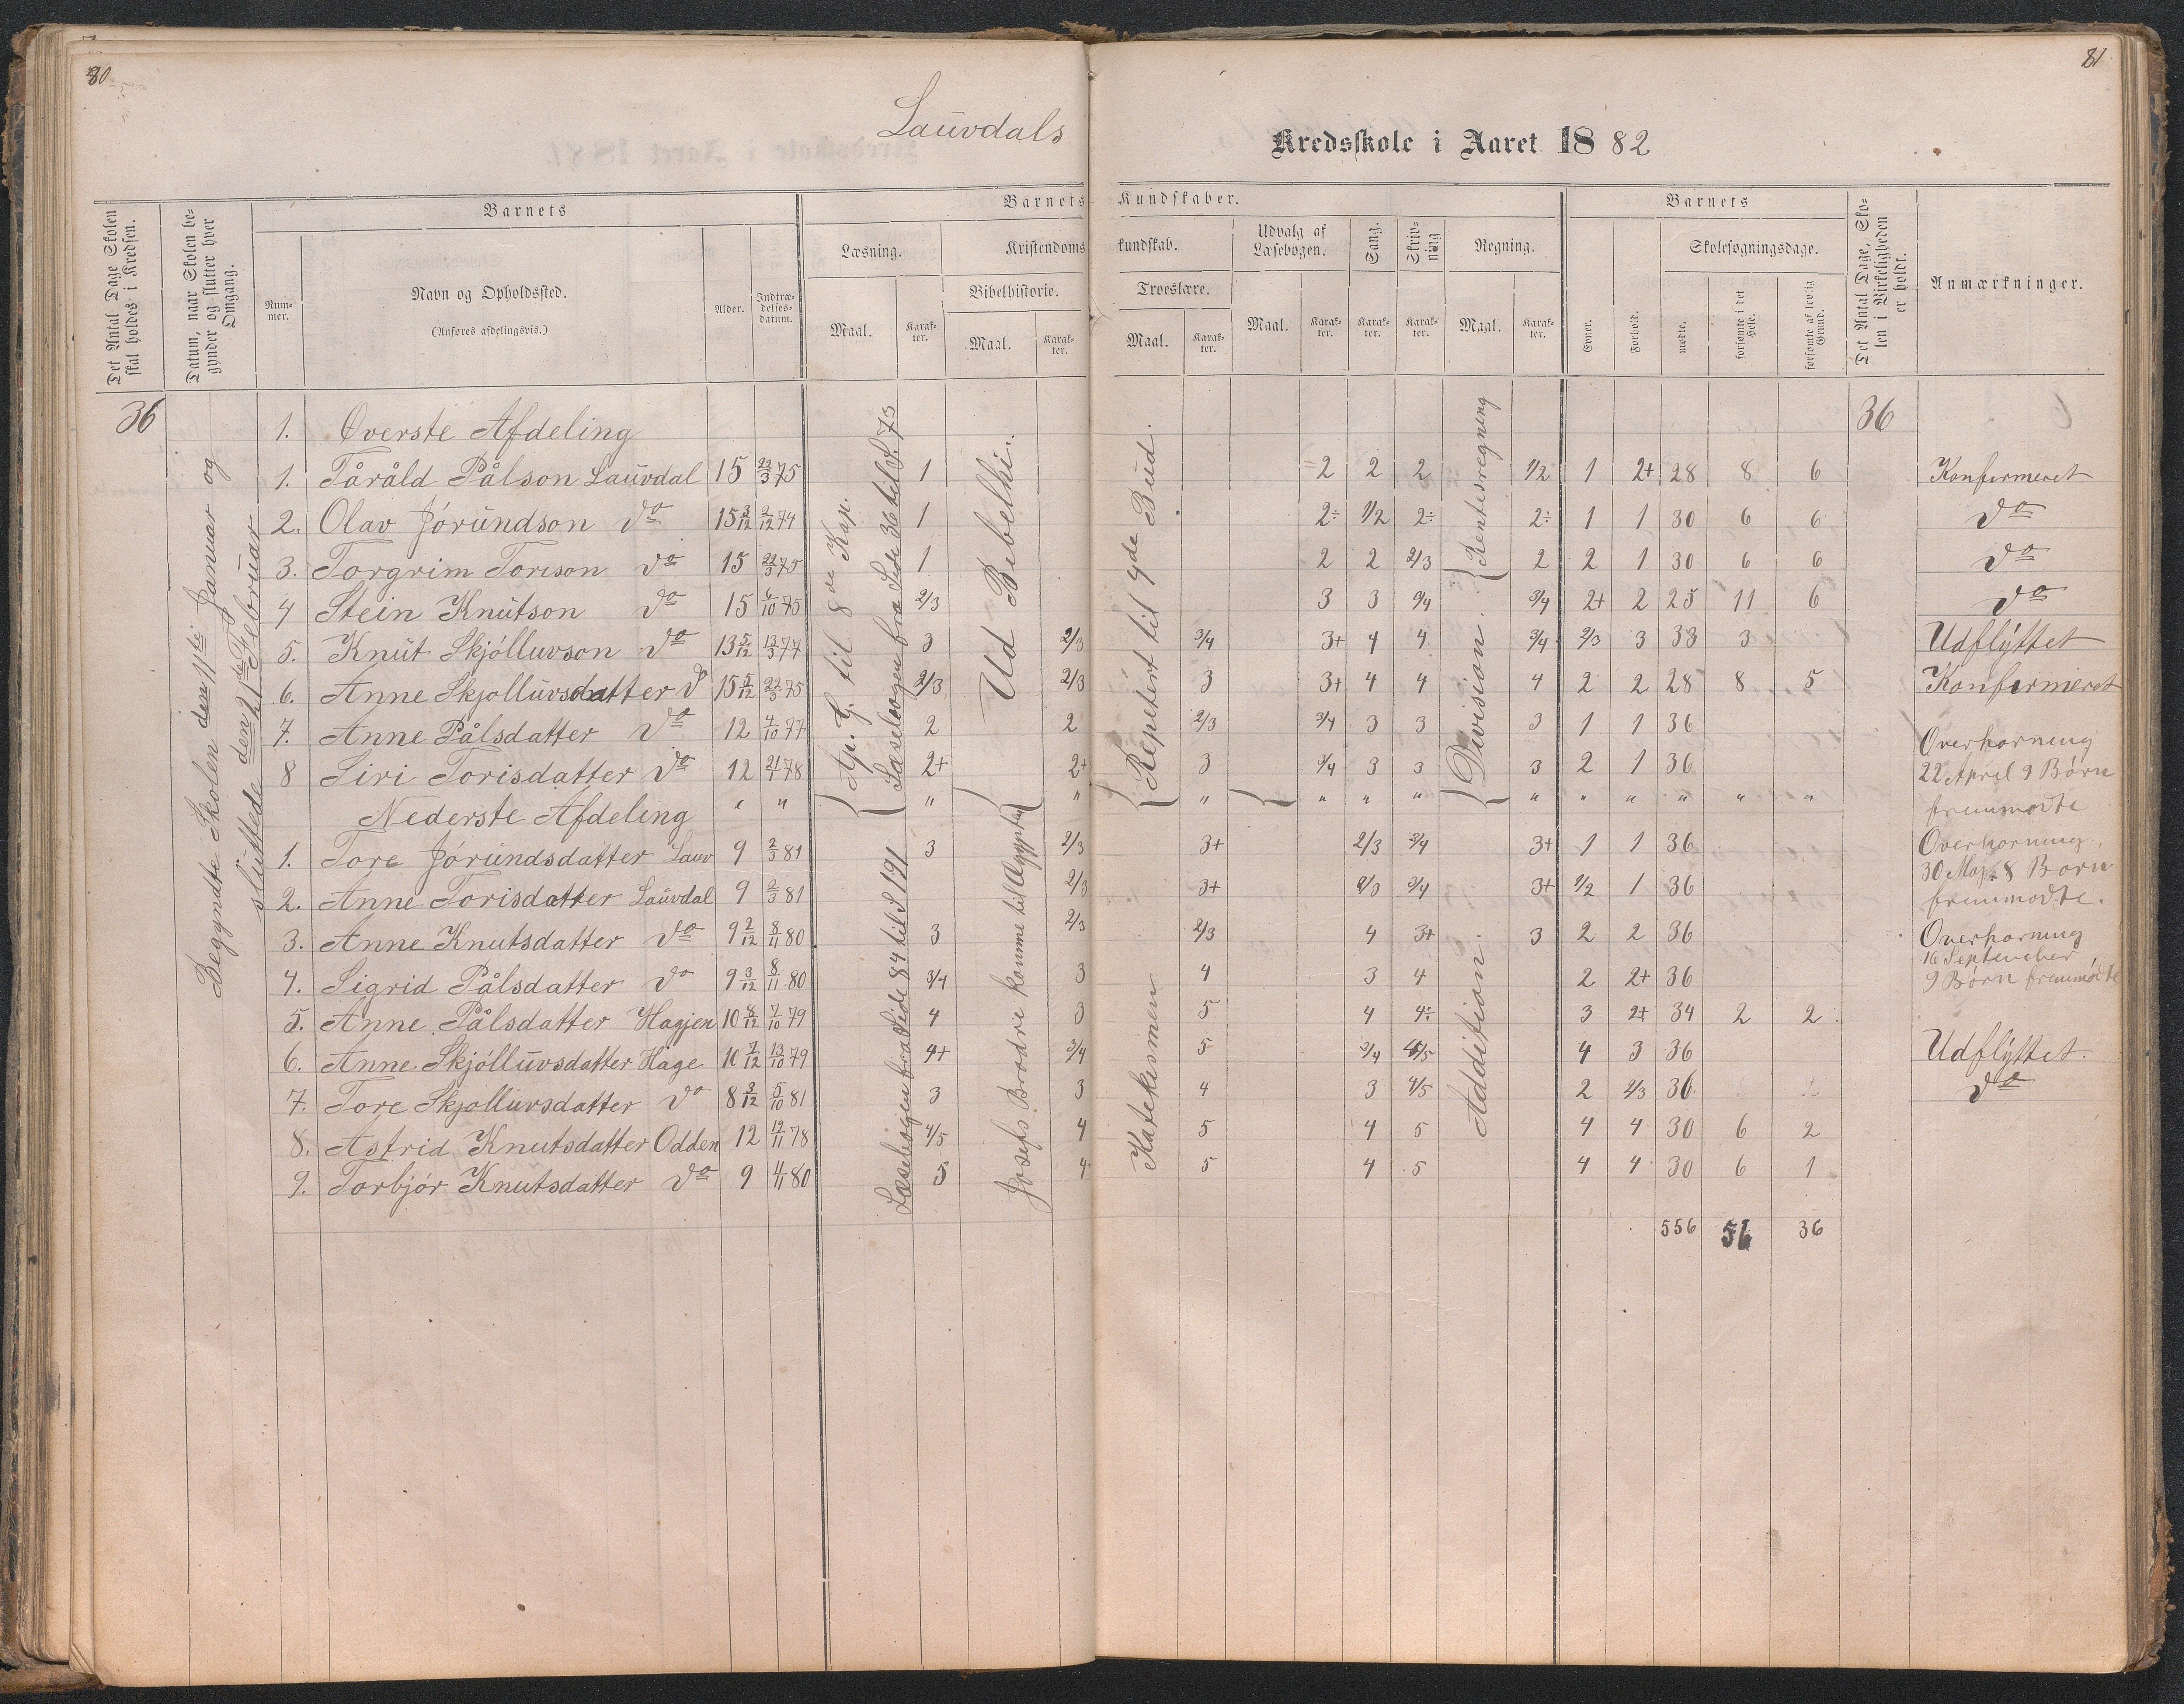 80
81
Lauvdals Kredsskole i Aaret 1882
Det Antal Dage Skolen skal holdes i Kredsen.
Datum, naar Skolen begynder og slutter hver Omgang.
Barnets
Nummer.
Navn og Opholdssted.
(Anføres afdelingsvis.)
Alder.
Indtrædelsesdatum.
Barnets Kundskaber.
Læsning.
Maal.
Karakter.
Kristendomskundskab.
Bibelhistorie.
Maal.
Karakter.
Troeslære.
Maal.
Karakter.
Udvalg af Læsebogen.
Maal.
Karakter.
Sang.
Karakter.
Skrivning
Karakter.
Regning.
Maal.
Karakter.
Barnets
Evner.
Forhold.
Skolesøgningsdage.
mødte.
forsømte i det Hele.
forsømte af lovlig Grund.
Det Antal Dage, Skolen i Virkeligheden er holdt.
Anmærkninger.
36
Begyndte Skolen den 11te Januar og
sluttede den 21de Februar
Ap. G. til 8de Kap.
Læsebogen fra Side 36 til S. 73
Ud Bibelhi.
Repetert til 9de Bud.
Rentesregning
Division.
36
1. Øverste Afdeling
1. Tåråld Pålson Lauvdal 15 22/3 75 1 2 2 2 1/2 1 2+ 28 8 6 Konfirmeret
2. Olav Jórundson do 15 3/12 2/12 74 1 2÷ 1/2 2÷ 2÷ 1 1 30 6 6 do
3. Torgrim Torison do 15 22/3 75 1 2 2 2/3 2 2 1 30 6 6 do
4 Stein Knutson do 15 6/10 75 2/3 3 3 3/4 3/4 2+ 2 25 11 6 do
5. Knut Skjólluvson do 13 5/12 13/3 77 3 2/3 3/4 3+ 4 4 3/4 2/3 3 33 3 Udflyttet
6. Anne Skjolluvsdatter do 15 5/12 22/3 75 2/3 2/3 3 3+ 4 4 4 2 2 28 8 5 Konfirmeret
7. Anne Pålsdatter do 12 4/10 77 2 2 2/3 3/4 3 3 3 1 1 36
8 Siri Torisdatter do 12 21/1 78 2+ 2+ 3 3/4 3 3 3 2 1 36
Overhørning
22 April 9 Børn
fremmødte
Nederste Afdeling " " " " " " " " " " " " " "
Læsebogen fra Side 84 til S 191
Josefs Brødre komme til Ægypten
Katekismen
Addition.
1. Tore Jórundsdatter Lauv 9 2/3 81 3 2/3 3+ 2/3 3/4 3+ 1 1 36
2. Anne Torisdatter Lauvdal 9 2/3 81 2/3 3+ 2/3 3/4 3+ 1/2 1 36
Overhørning
30 Maj 8 Børn
fremmødte.
3. Anne Knutsdatter do 9 2/12 8/11 80 3 2/3 2/3 4 3+ 3 2 2 36
4. Sigrid Pålsdatter do 9 3/12 8/11 80 3/4 3 4 3 4 2 2+ 36
Overhørning
16 September
9 Børn fremmødte
5. Anne Pålsdatter Hagjen 10 8/12 7/10 79 4 3 5 4 4÷ 3 2+ 34 2 2
6. Anne Skjólluvsdatter Hage 10 7/12 13/10 79 4+ 3/4 5 3/4 4/5 4 3 36 Udflyttet.
7. Tore Skjolluvsdatter do 8 3/12 5/10 81 3 3 4 3 4/5 2 2/3 36 do
8. Astrid Knutsdatter Odden 12 12/11 78 4/5 4 5 4 5 4 4 30 6 2
9. Torbjór Knutsdatter do 9 4/11 80 5 4 5 4 5 4 4 30 6 1
556 56 36